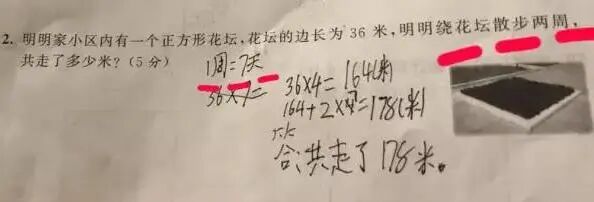 2. 明明家小区内有一个正方形花坛,花坛的边长为 36 米,明明绕花坛散步两周,
共走了多少米?(5 分)
1周=7天
36×7=
36×4=164(米)
164+2×7=178(米)
答:共走了178米。